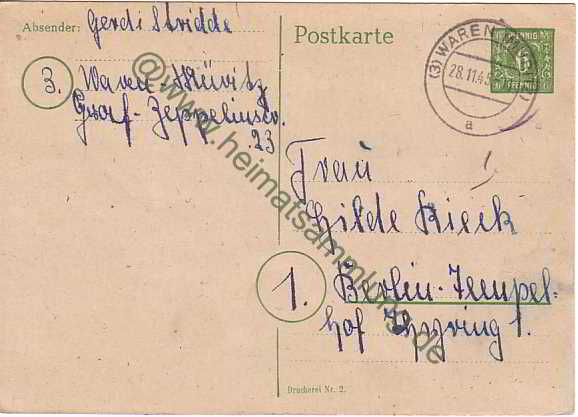 Absender: Gerdi Stridde
3. Waren Müritz
Graf-Zeppelinstr.
23
Postkarte
(3) WAREN
28.11.45
a
PFENNIG
Frau
Hilde Rieck
1. Berlin-Tempel-
hof Thuyring 1.
Druckerei Nr. 2.
@www.heimatsammlung.de